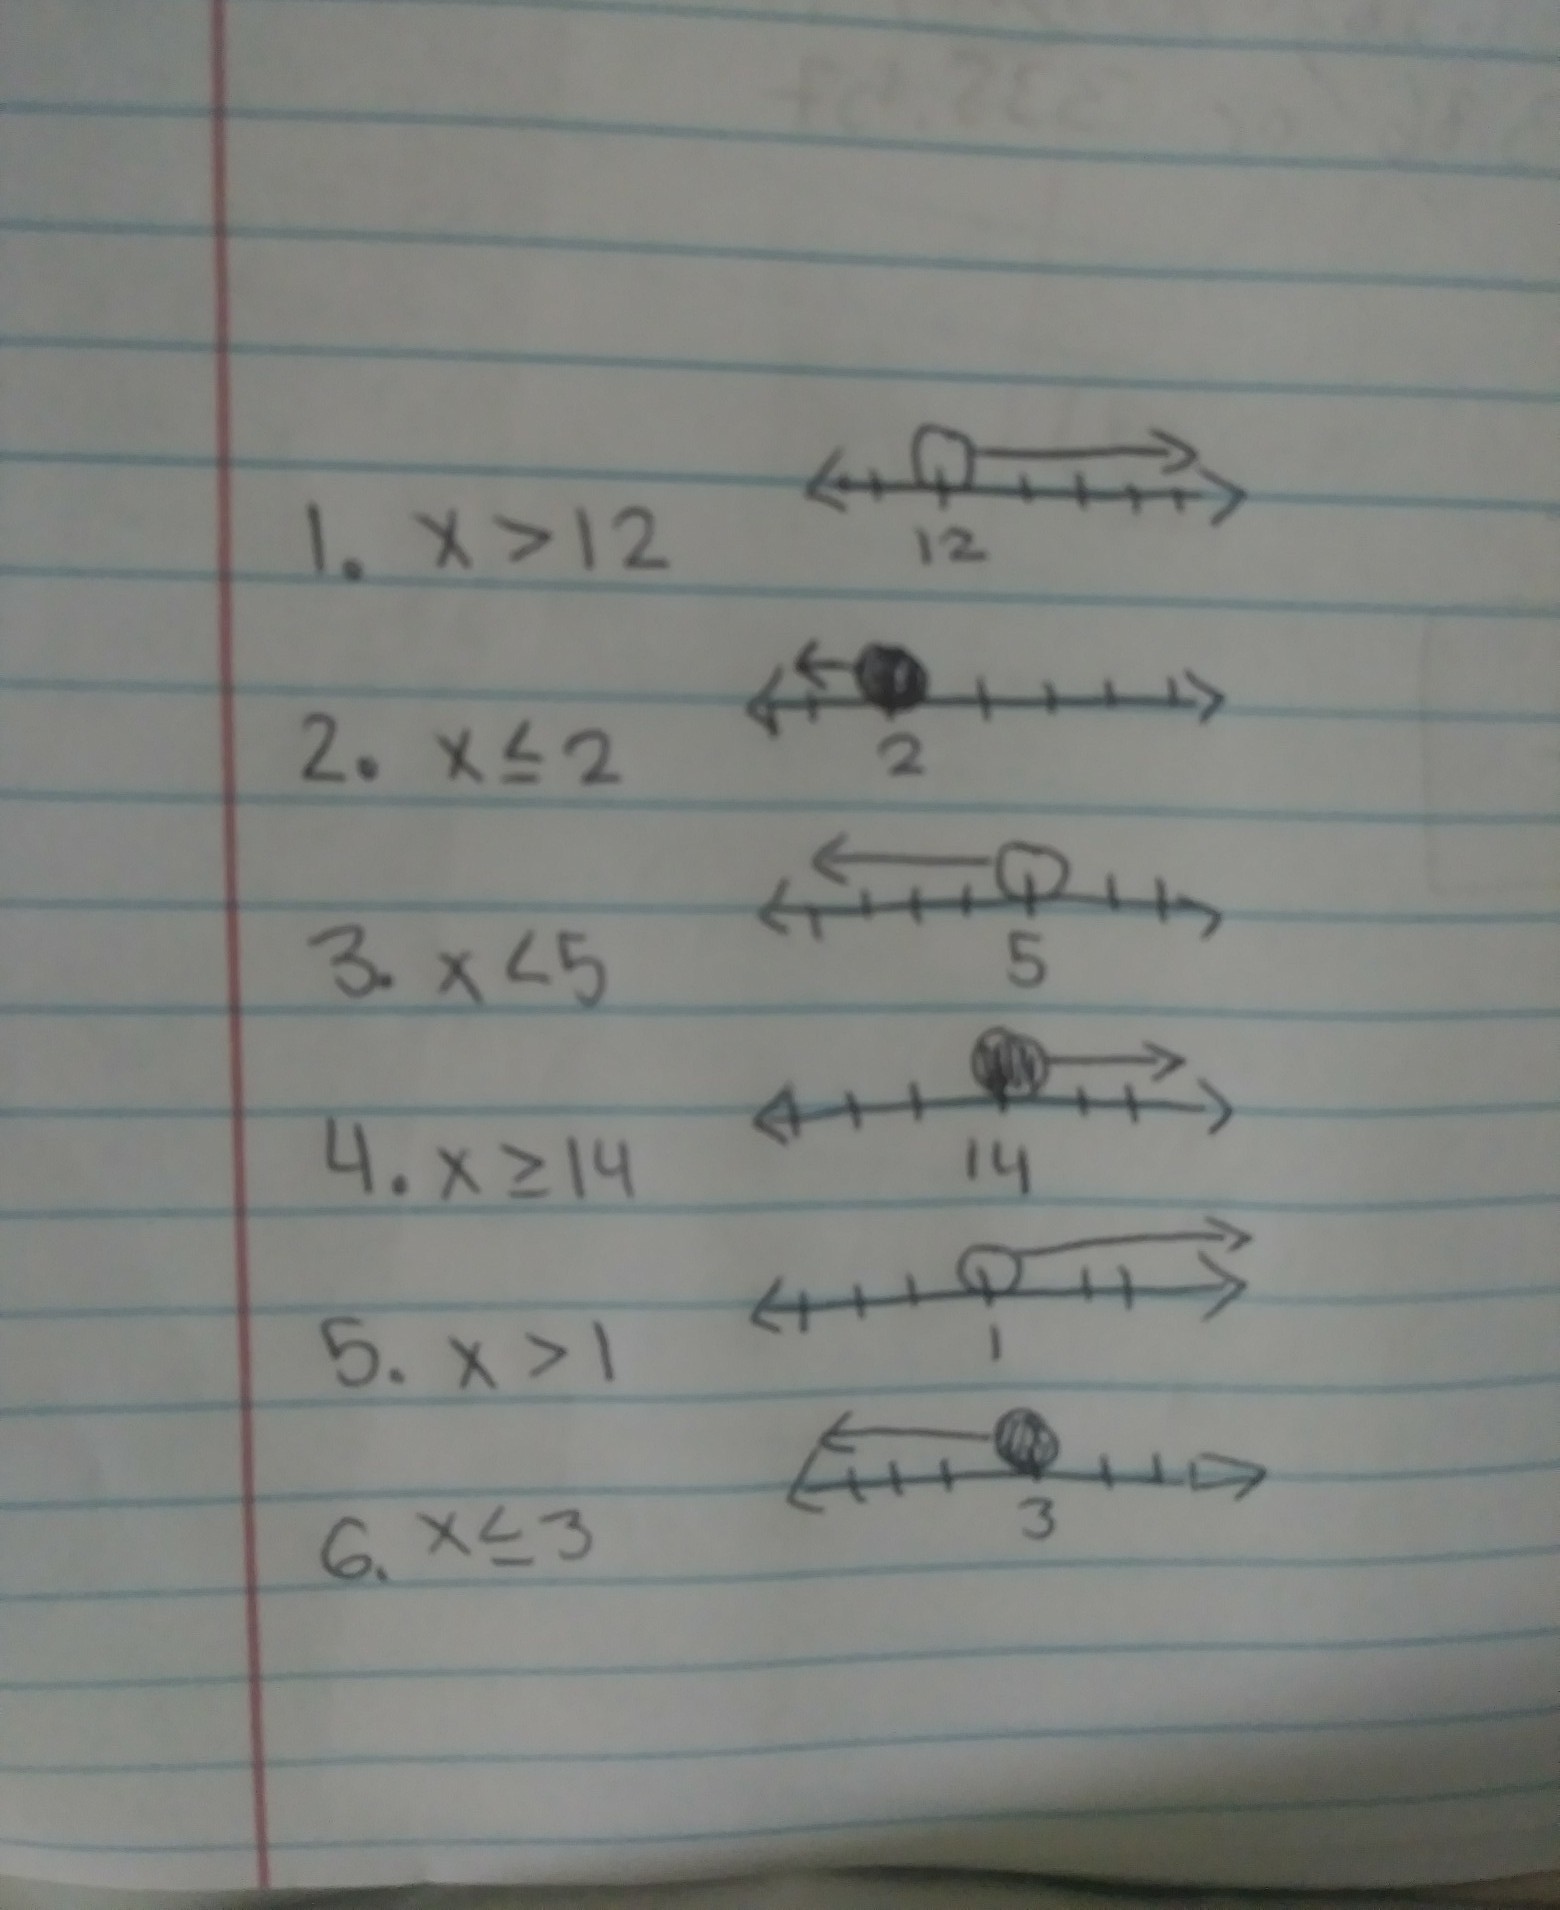 1. x > 12
12
2. x ≤ 2
2
3. x < 5
5
4. x ≥ 14
14
5. x > 1
1
6. x ≤ 3
3